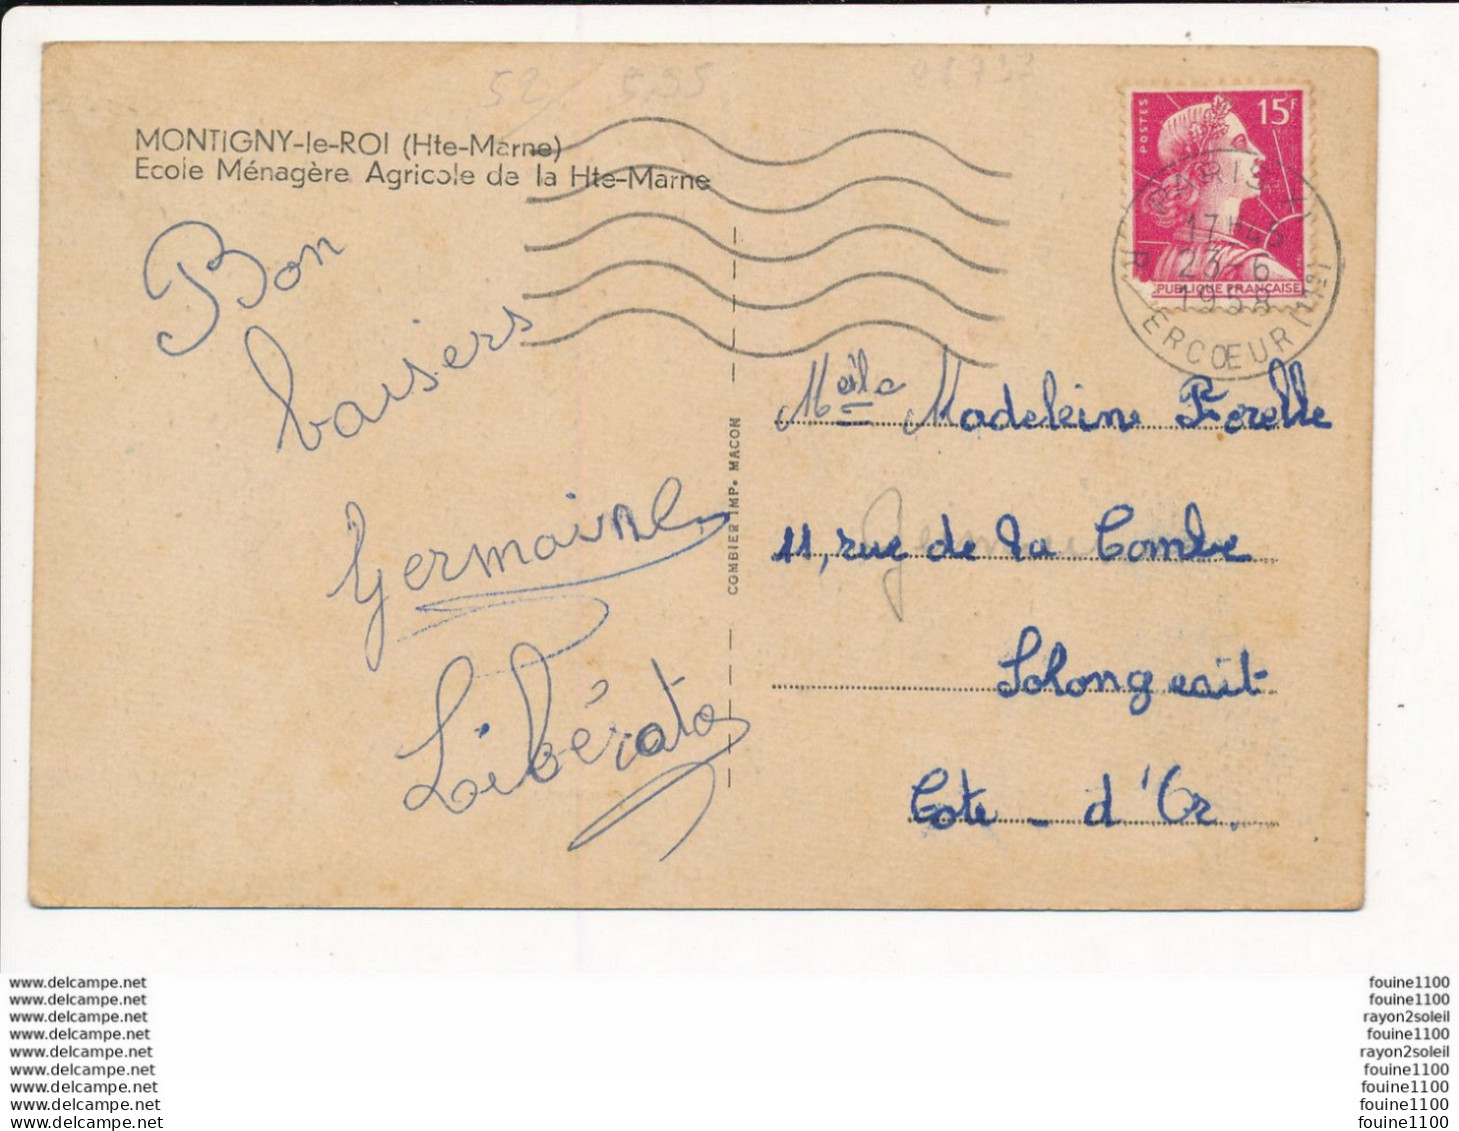 MONTIGNY-le-ROI (Hte-Marne)
Ecole Ménagère Agricole de la Hte-Marne
Bon
baisers
Germaine
Libérato
COMBIER IMP. MACON
POSTES
15F
REPUBLIQUE FRANÇAISE
PARIS
17H45
23-6
1958
R. CERCŒUR (11e)
Melle Madeleine Forelle
11, rue de la Combe
Solongeait
Cote - d'Or.
www.delcampe.net
www.delcampe.net
www.delcampe.net
www.delcampe.net
www.delcampe.net
www.delcampe.net
www.delcampe.net
www.delcampe.net
www.delcampe.net
fouine1100
fouine1100
rayon2soleil
fouine1100
rayon2soleil
fouine1100
fouine1100
fouine1100
fouine1100